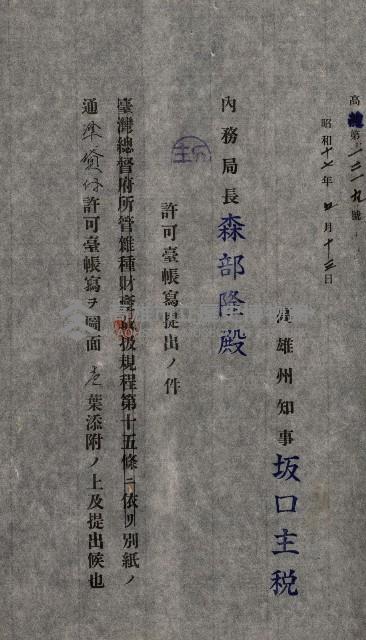 高第一二一九號
昭和十七年 月十三日
高雄州知事 坂口主税
內務局長 森部隆殿
許可臺帳寫提出ノ件
臺灣總督府所管雜種財產取扱規程第十五條ニ依リ別紙ノ
通 許可臺帳寫ヲ圖面 葉添附ノ上及提出候也